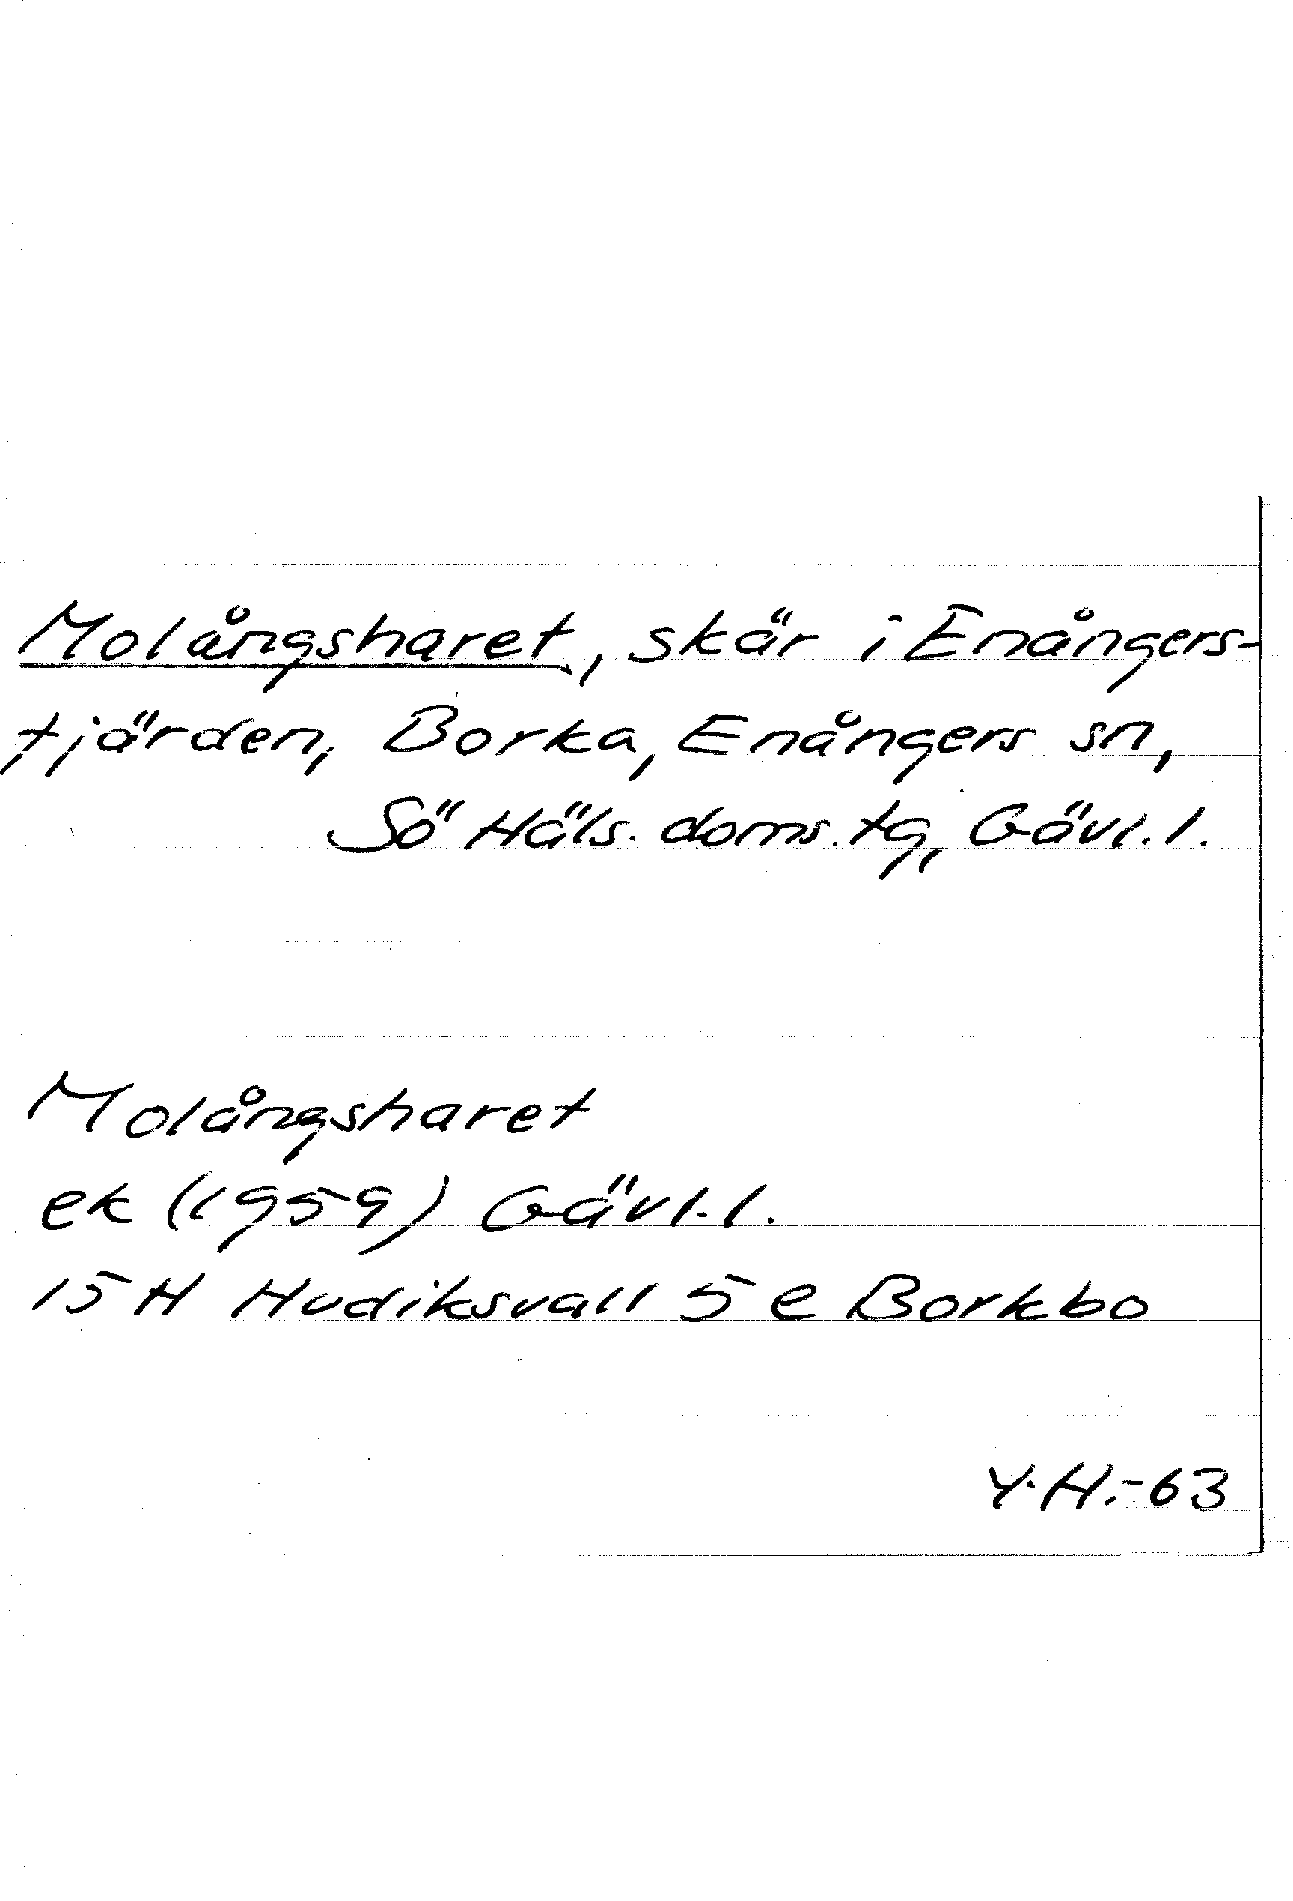 Molångsharet, skär i Enångers-
fjärden, Borka, Enångers sn,
Sö Häls. doms. tg, Gävl. l.
Molångsharet
ek (1959) Gävl. l.
15 H Hudiksvall 5 e Borkbo
Y. H. -63